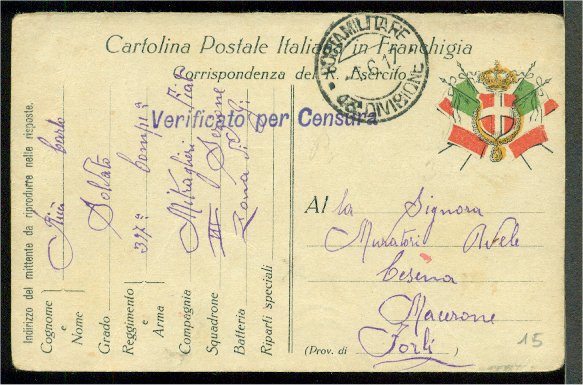 Cartolina Postale Italiana in Franchigia
Corrispondenza del R. Esercito
POSTA MILITARE
.6.17
48ª DIVISIONE
Verificato per Censura
Indirizzo del mittente da riprodurre nelle risposte.
Cognome e Nome Carlo
Grado Soldato
Reggimento e Arma 317ª Compª
Compagnia Mitraglieri Fiat
Squadrone III Sezione
Batteria Zona di
Riparti speciali
Alla Signora
Muratori
Cesena
Macerone
(Prov. di Forlì)
15